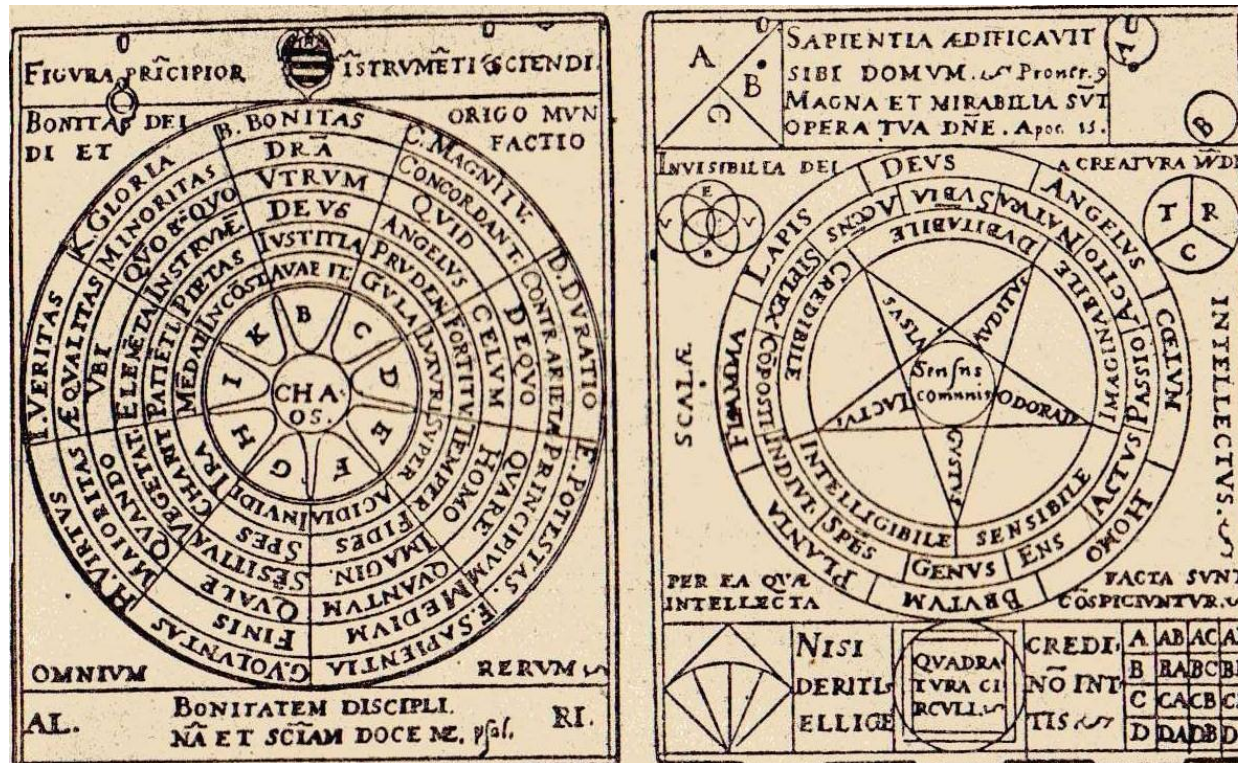 FIGVRA PRĨCIPIOR ĨSTRVMẼTI SCIENDI.
BONITAS DEI ORIGO MVN
DI ET FACTIO
B. BONITAS
C. MAGNITV.
D. DVRATIO
E. POTESTAS.
F. SAPIENTIA
G. VOLVNTAS
H. VIRTVS
I. VERITAS
K. GLORIA
DRÃ
CONCORDANT.
CONTRARIETA
PRINCIPIVM
MEDIVM
FINIS
MAIORITAS
ÆQVALITAS
MINORITAS
VTRVM
QVID
DE QVO
QVARE
QVANTVM
QVALE
QVANDO
VBI
DEVS
ANGELVS
CELVM
HOMO
IMAGIN.
VEGETAT
INSTRVMẼ
IVSTITIA
PRVDEN
FORTITV
TEMPER
FIDES
SPES
CHARIT
PATIẼTI
PIETAS
AVAE IT.
GVLA
LVXVRI
SVPER
ACIDIA
INVIDI
IRA
MẼDAI
INCÕST
B
C
D
E
F
G
H
I
K
CHA
OS.
OMNIVM RERVM
AL. BONITATEM DISCIPLI. RI.
NÃ ET SCĨAM DOCE ME. psal.
A
B
C
SAPIENTIA ÆDIFICAVIT
SIBI DOMVM. Prouer. 9
MAGNA ET MIRABILIA SVT
OPERA TVA DÑE. Apoc. 15.
A
B
INVISIBILIA DEI A CREATVRA MVDI
T R
C
DEVS
ANGELVS
CŒLVM
HOMO
BRVTVM
PLANTA
FLAMMA
LAPIS
SVBIA
NATVRA
ACTIO
PASSIO
ACTVS
ENS
GENVS
SPẼS
INDIVI.
CÕPOSTI
SĨPLEX
ACÑS
DVBITABILE
IMAGINABILE
SENSIBILE
INTELLIGIBILE
CREDIBILE
VISVS
AVDITVS
ODORATV
GVSTVS
TACTV.
Sensus
comunis
SCALÆ
INTELLECTVS.
PER EA QVÆ FACTA SVNT
INTELLECTA CÕSPICIVNTVR.
NISI CREDI.
DERITIS NÕ INT
ELLIGE TIS
QVADRA
TVRA CI
RCVLI.
A AB AC A
B BA BC B
C CA CB C
D DA DB D